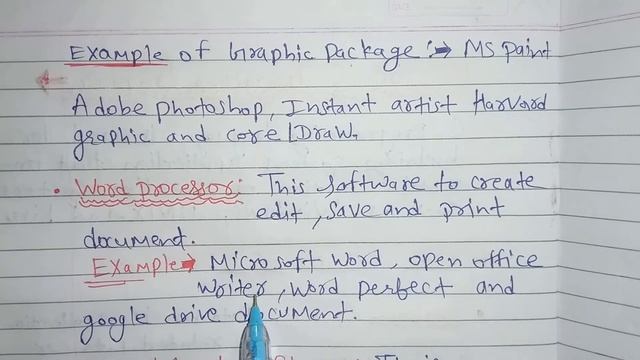 Example of Graphic Package :→ MS Paint
Adobe photoshop, Instant artist Harvard
graphic and corelDraw,
• Word processor: This software to create
edit, save and print
document.
Example→ Microsoft word, open office
writer, word perfect and
google drive document.